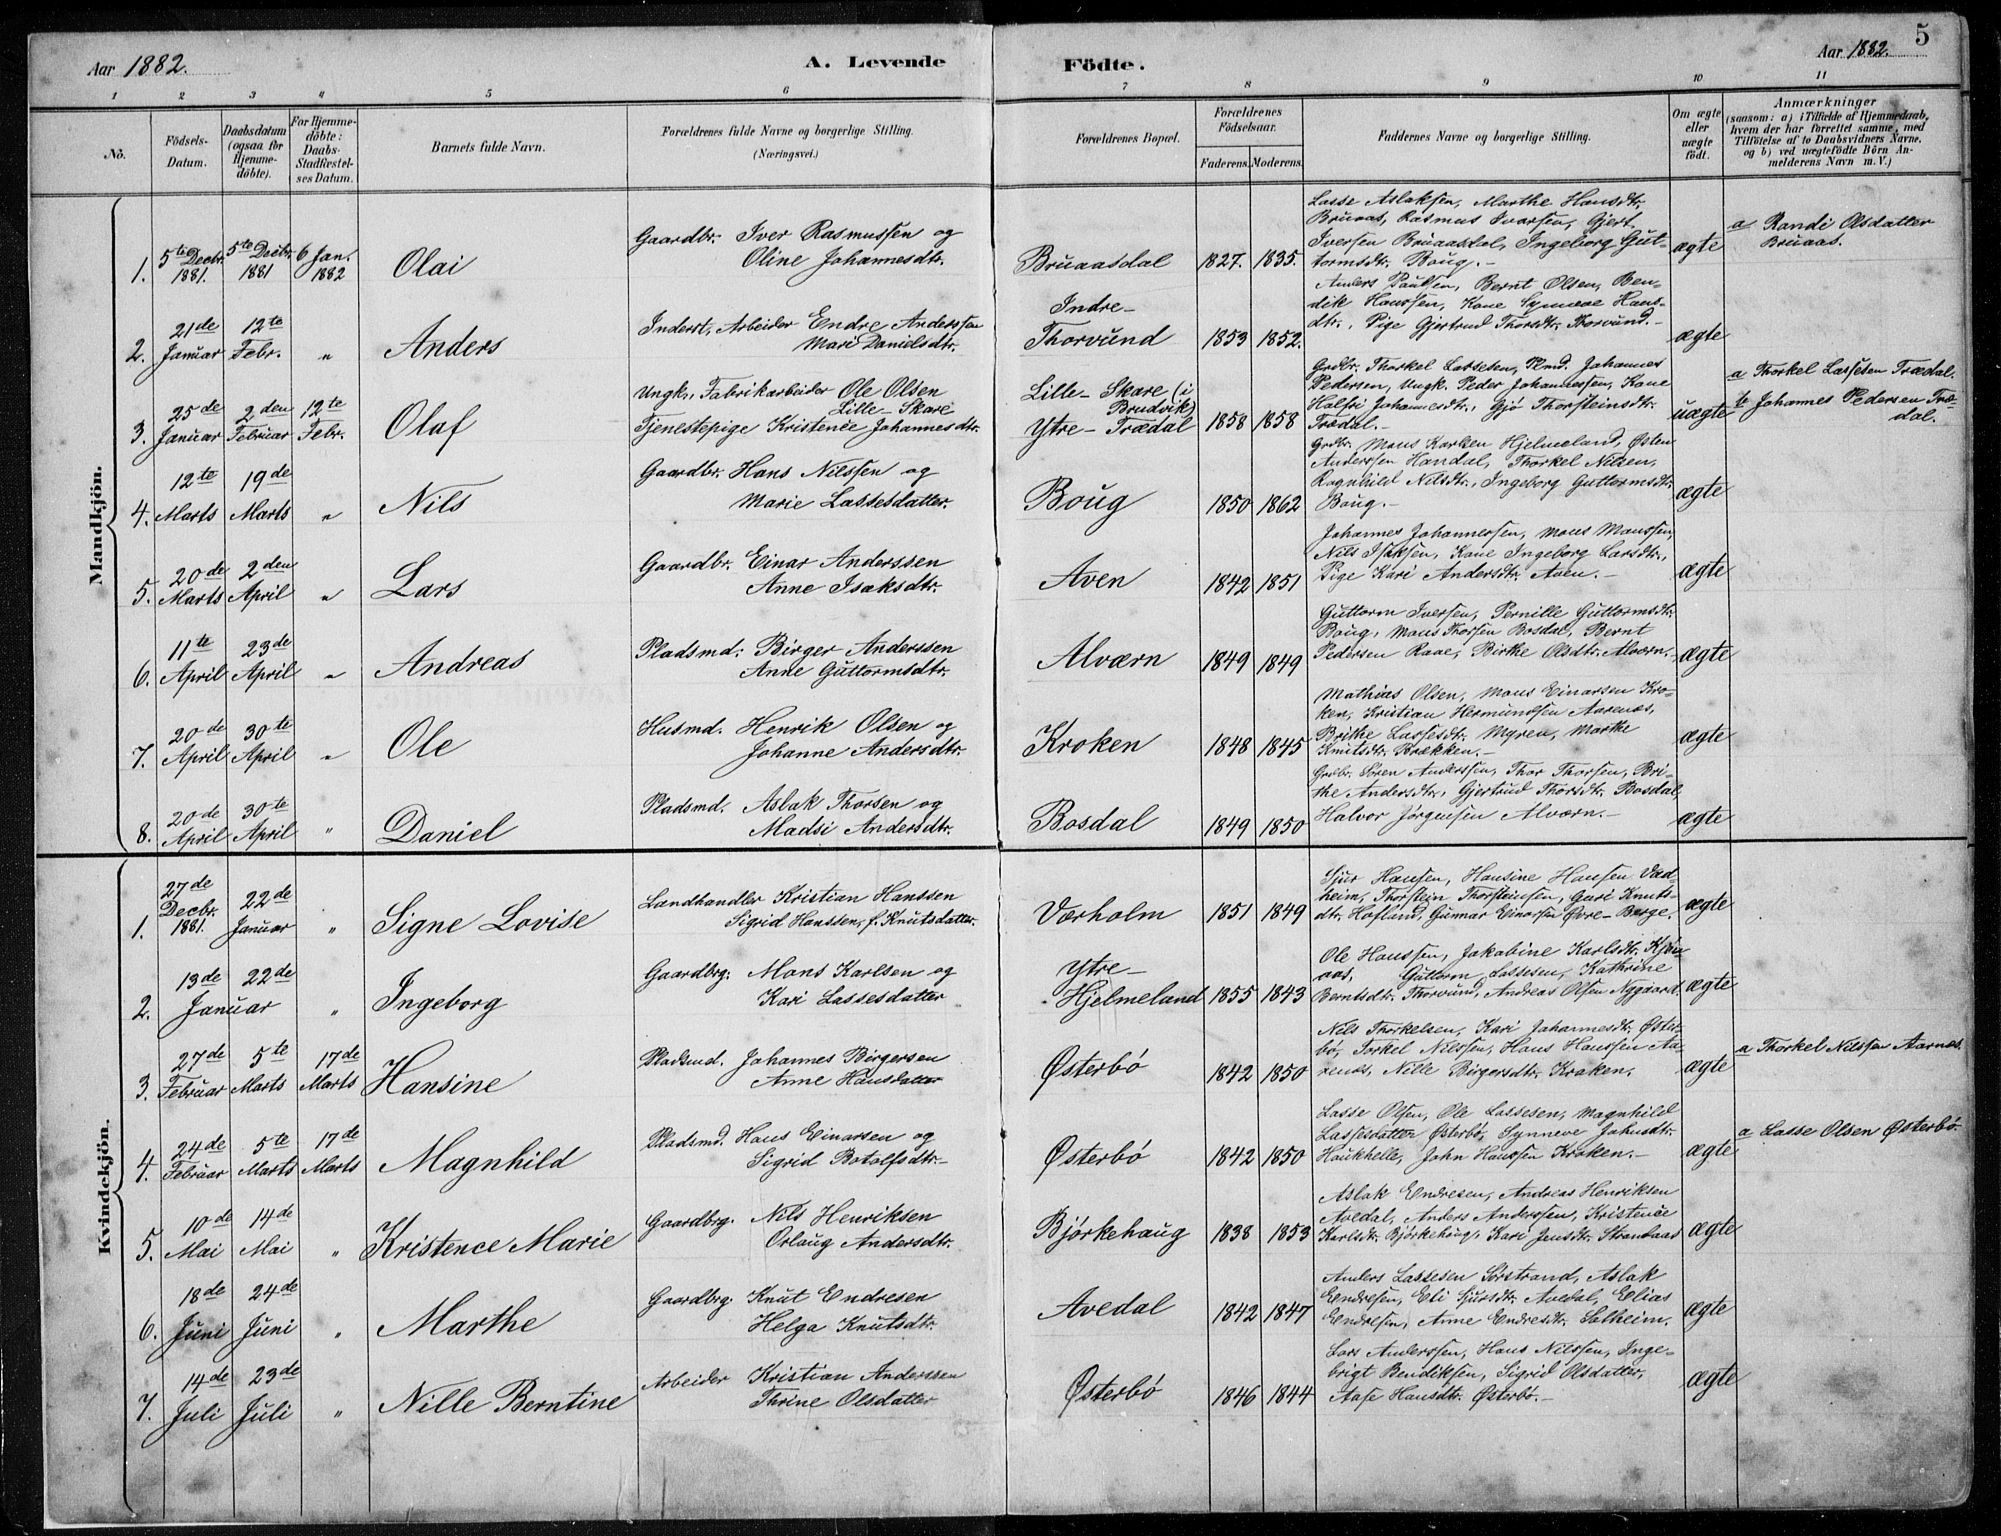 Aar 1882.
A. Levende Födte.
Aar 1882. 5
1 2 3 4 5 6 7 8 9 10 11
No.
Födsels-Datum.
Daabsdatum (ogsaa for Hjemme-döbte).
For Hjemme-döbte: Daabs-Stadfæstel-ses Datum.
Barnets fulde Navn.
Forældrenes fulde Navne og borgerlige Stilling.
(Næringsvei.)
Forældrenes Bopæl.
Forældrenes Födselsaar.
Faderens. Moderens.
Faddernes Navne og borgerlige Stilling.
Om ægte eller uægte födt.
Anmærkninger
(saasom: a) i Tilfælde af Hjemmedaab, hvem der har forrettet samme, med Tilföielse af to Daabsvidners Navne, og b) ved uægtefödte Börn An-melderens Navn m. V.)
Mandkjön.
1. 5te Decbr. 1881. 5te Decbr. 1881 6 Jan. 1882 Olai
Gaardbr. Iver Rasmussen og
Oline Johannesdtr.
Bruaasdal 1827. 1835.
Lasse Aslaksen, Marthe Hansdtr.
Bruaas, Rasmus Ivarsen, Gjert
Iversen Bruaasdal, Ingeborg Gut-
tormsdtr. Boug.-
ægte
a Randi Olsdatter
Bruaas.
2. 21de Januar 12te Febr. " Anders
Inderst, Arbeider Endre Anderssen
Mari Danielsdtr.
Indre-
Thorvund 1853 1852.
Anders Paulsen, Bernt Olsen, Ben-
dik Hanssen, Kone Synneve Hans-
dtr., Pige Gjertrud Thorsdtr. Thorvund.-
ægte
3. 25de Januar 2den Februar 12te Febr. Olaf
Ungk., Fabrikarbeider Ole Olsen
Lille-Skare
Tjenestepige Kristence Johannesdtr.
Lille-Skare (i
Brudvik)
Ytre-Trædal 1858 1858
Grdbr. Thorkel Lassesen, Plmd. Johannes
Pedersen, Ungk. Peder Johannessen, Kone
Halfri Johannesdtr., Gjø Thorsteinsdtr.
Trædal.-
uægte
a Thorkel Lassesen Trædal.
b Johannes Pedersen Træ-
dal.
4. 12te Marts 19de Marts " Nils
Gaardbr. Hans Nilssen og
Marie Lassesdatter.
Boug 1850 1862
Grdbr. Mons Karlsen Hjelmeland, Østen
Anderssen Handal, Thorkel Nilsen,
Ragnhild Nilsdtr., Ingeborg Guttormsdtr.
Boug.-
ægte
5. 20de Marts 2den April " Lars
Gaardbr. Einar Anderssen
Anne Isaksdtr.
Aven 1842 1851
Johannes Johannessen, Mons Monssen,
Nils Isaksen, Kone Ingeborg Larsdtr.,
Pige Kari Andersdtr. Aven.-
ægte
6. 11te April 23de April " Andreas
Pladsmd: Birger Anderssen
Anne Guttormsdtr.
Alværn 1849 1849
Guttorm Iversen, Pernille Guttormsdtr.
Boug, Mons Thorsen Bosdal, Bernt
Pedersen Raae, Birthe Olsdtr. Alværn.
ægte
7. 20de April 30te April " Ole
Husmd. Henrik Olsen og
Johanne Andersdtr.
Kroken 1848 1845
Mathias Olsen, Mons Einarsen Kro-
ken, Kristian Hermundsen Aarenes,
Brithe Lassesdtr. Myren, Marthe
Knutsdtr. Brækken.-
ægte
8. 20de April 30te April " Daniel
Pladsmd. Aslak Thorsen og
Madsi Andersdtr.
Bosdal 1849 1850
Grdbr. Søren Anderssen, Thor Thorsen, Bri-
the Andersdtr., Gjertrud Thorsdtr. Bosdal,
Halvor Jørgensen Alværn.-
ægte
Kvindekjön.
1. 27de Decbr. 1881. 22de Januar " Signe Lovise
Landhandler Kristian Hanssen
Sigrid Hanssen, f. Knutsdatter.
Værholm 1851 1849
Sjur Hansen, Hansine Hansen Vad-
heim, Thorstein Thorsteinsen, Guri Knuts-
dtr. Hofland, Gumar Einarsen Øvre-Berge.
ægte
2. 13de Januar 22de " Ingeborg
Gaardbrg. Mons Karlsen og
Kari Lassesdatter
Ytre-
Hjelmeland 1855 1843
Ole Hanssen, Jakobine Karlsdtr.
aas, Guttorm Lassesen, Kathrine
Berntsdtr. Thorvund, Andreas Olsen Nygaard.
ægte
3. 27de Februar 5te Marts 17de Marts Hansine
Pladsmd. Johannes Birgersen
Anne Hansdatter
Østerbø 1842 1850
Nils Thorkelsen, Kari Johannesdtr. Øster-
bø, Torkel Nilssen, Hans Hanssen Aa-
renes, Nille Birgersdtr. Kroken.
ægte
a Thorkel Nilssen Aarnes.
4. 24de Februar 5te Marts 17de Marts Magnhild
Pladsmd. Hans Einarsen og
Sigrid Botolfsdtr.-
Østerbø 1842 1850
Lasse Olsen, Ole Lassesen, Magnhild
Lassesdatter Østerbø, Synneve Johnsdtr.
Haukhelle, John Hanssen Kroken.-
ægte
a Lasse Olsen Østerbø.
5. 10de Mai 14de Mai " Kristence Marie
Gaardbrg. Nils Henriksen
Orlaug Andersdtr.
Bjørkehaug 1838 1853
Aslak Endresen, Andreas Henriksen
Avedal, Anders Anderssen, Kristence
Karlsdtr. Bjørkehaug, Kari Jensdtr. Strandaas
ægte
6. 18de Juni 24de Juni " Marthe
Gaardbrg. Knut Endresen
Helga Knutsdtr.
Avedal 1842 1847
Anders Lassesen Sørstrand, Aslak
Endresen, Eli Sjursdtr. Avedal, Elias
Endresen, Anne Endresdtr. Solheim.
ægte
7. 14de Juli 23de Juli " Nille Berntine
Arbeider Kristian Anderssen
Thrine Olsdatter
Østerbø 1846 1844
Lars Anderssen, Hans Nilssen, Inge-
brigt Bendiksen, Sigrid Olsdatter,
Aase Hansdtr. Østerbø.-
ægte